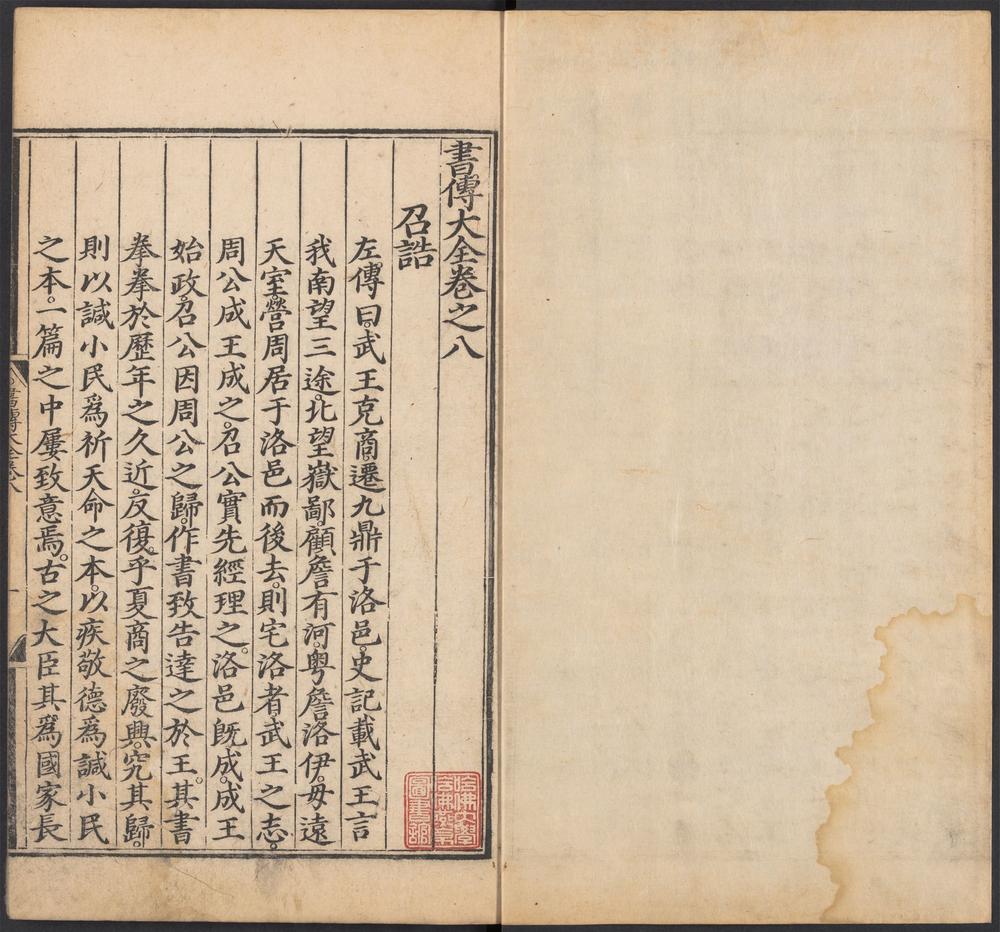 書傳大全卷之八
召誥
左傳曰武王克商遷九鼎于洛邑史記載武王言
我南望三途北望嶽鄙顧詹有河粤詹洛伊毋遠
天室營周居于洛邑而後去則宅洛者武王之志
周公成王成之召公實先經理之洛邑既成成王
始政召公因周公之歸作書致告達之於王其書
拳拳於歷年之久近反復乎夏商之廢興究其歸
則以諴小民爲祈天命之本以疾敬德爲諴小民
之本一篇之中屢致意焉古之大臣其爲國家長
哈佛大學
哈佛燕京
圖書館